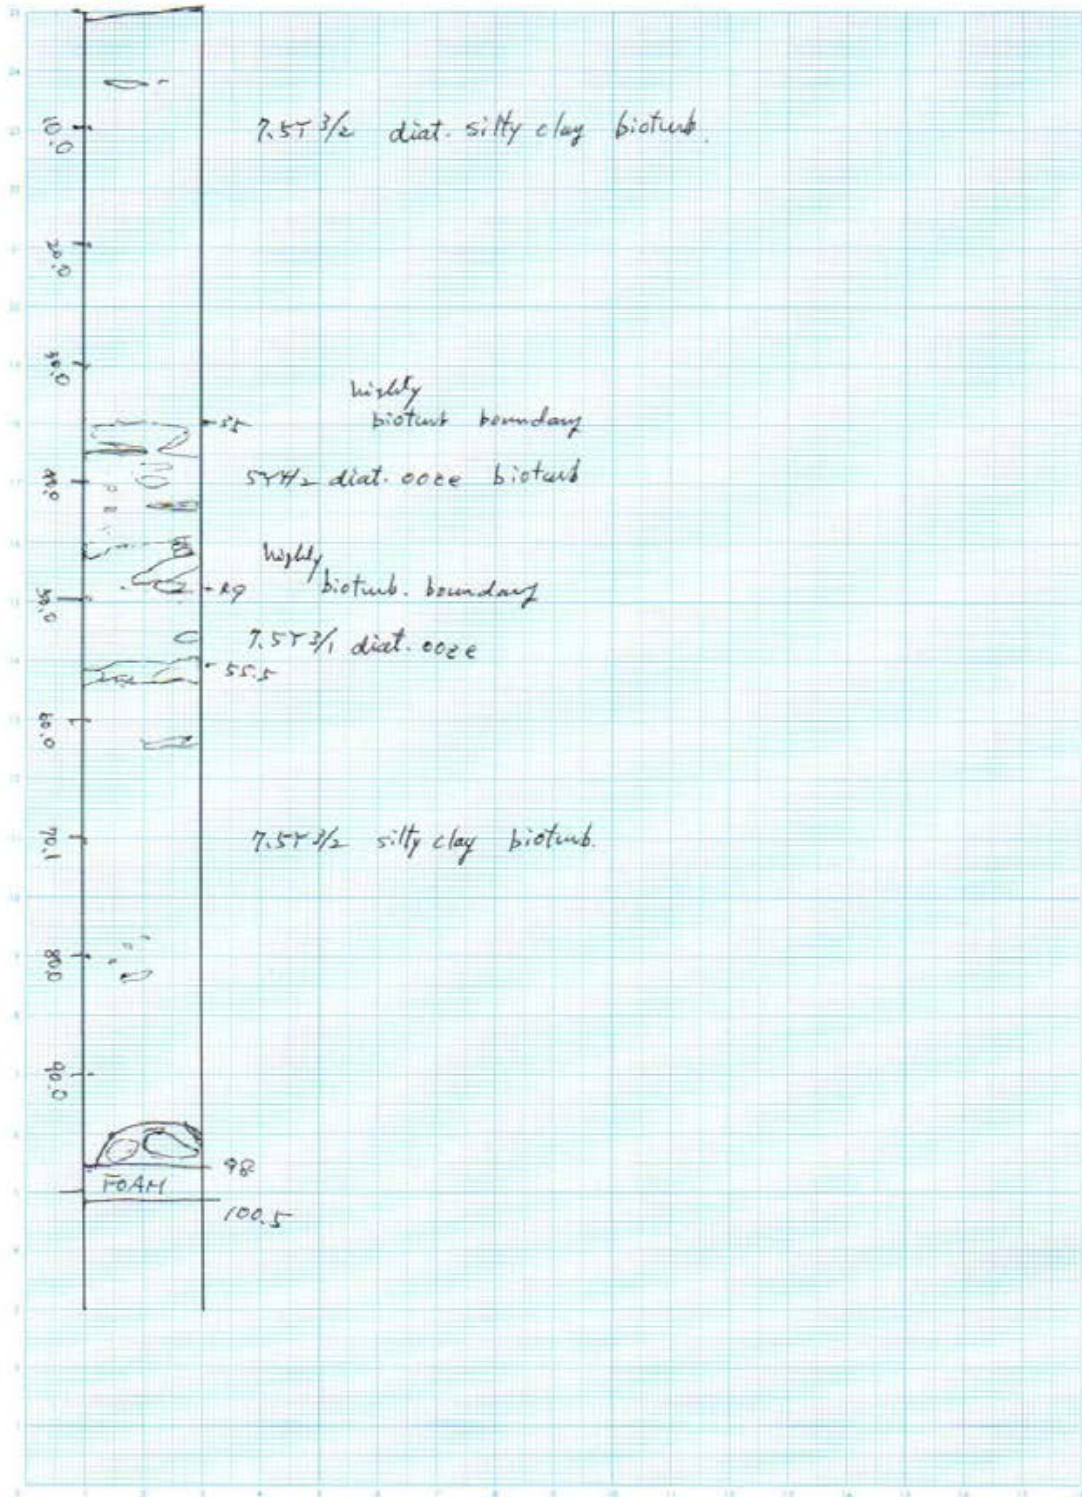 10.0
7.5Y 3/2 diat. silty clay bioturb.
20.0
30.0
highly
bioturb boundary
35
40.0
5Y4/2 diat. ooze bioturb
highly
bioturb. boundary
49
50.0
7.5Y 3/1 diat. ooze
55.5
60.0
70.1
7.5Y 3/2 silty clay bioturb.
80.0
90.0
98
FOAM
100.5